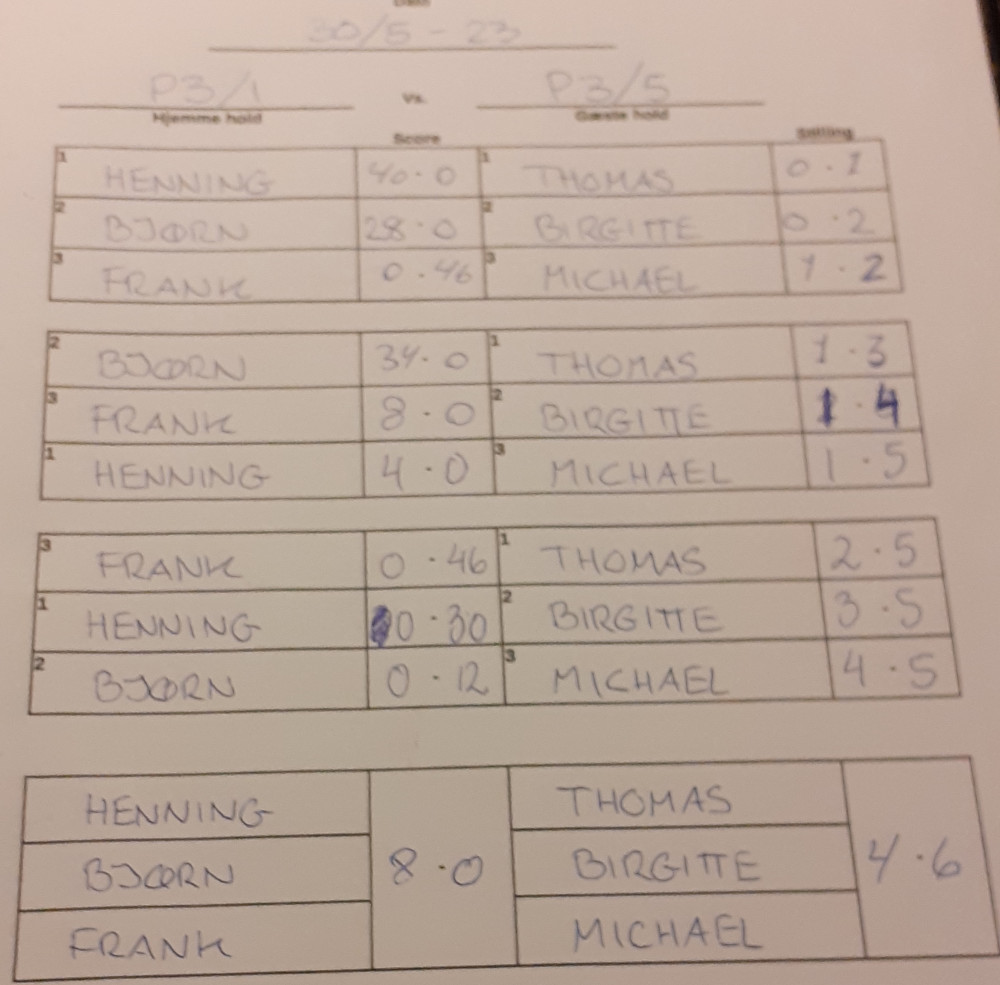 Dato
30/5 - 23
P3/1 Vs. P3/5
Hjemme hold Gæste hold
Score Stilling
1 HENNING 40 · 0 1 THOMAS 0 · 1
2 BJØRN 28 · 0 2 BIRGITTE 0 · 2
3 FRANK 0 · 46 3 MICHAEL 1 · 2
2 BJØRN 34 · 0 1 THOMAS 1 · 3
3 FRANK 8 · 0 2 BIRGITTE 1 · 4
1 HENNING 4 · 0 3 MICHAEL 1 · 5
3 FRANK 0 · 46 1 THOMAS 2 · 5
1 HENNING 0 · 30 2 BIRGITTE 3 · 5
2 BJØRN 0 · 12 3 MICHAEL 4 · 5
HENNING THOMAS
BJØRN 8 · 0 BIRGITTE 4 · 6
FRANK MICHAEL